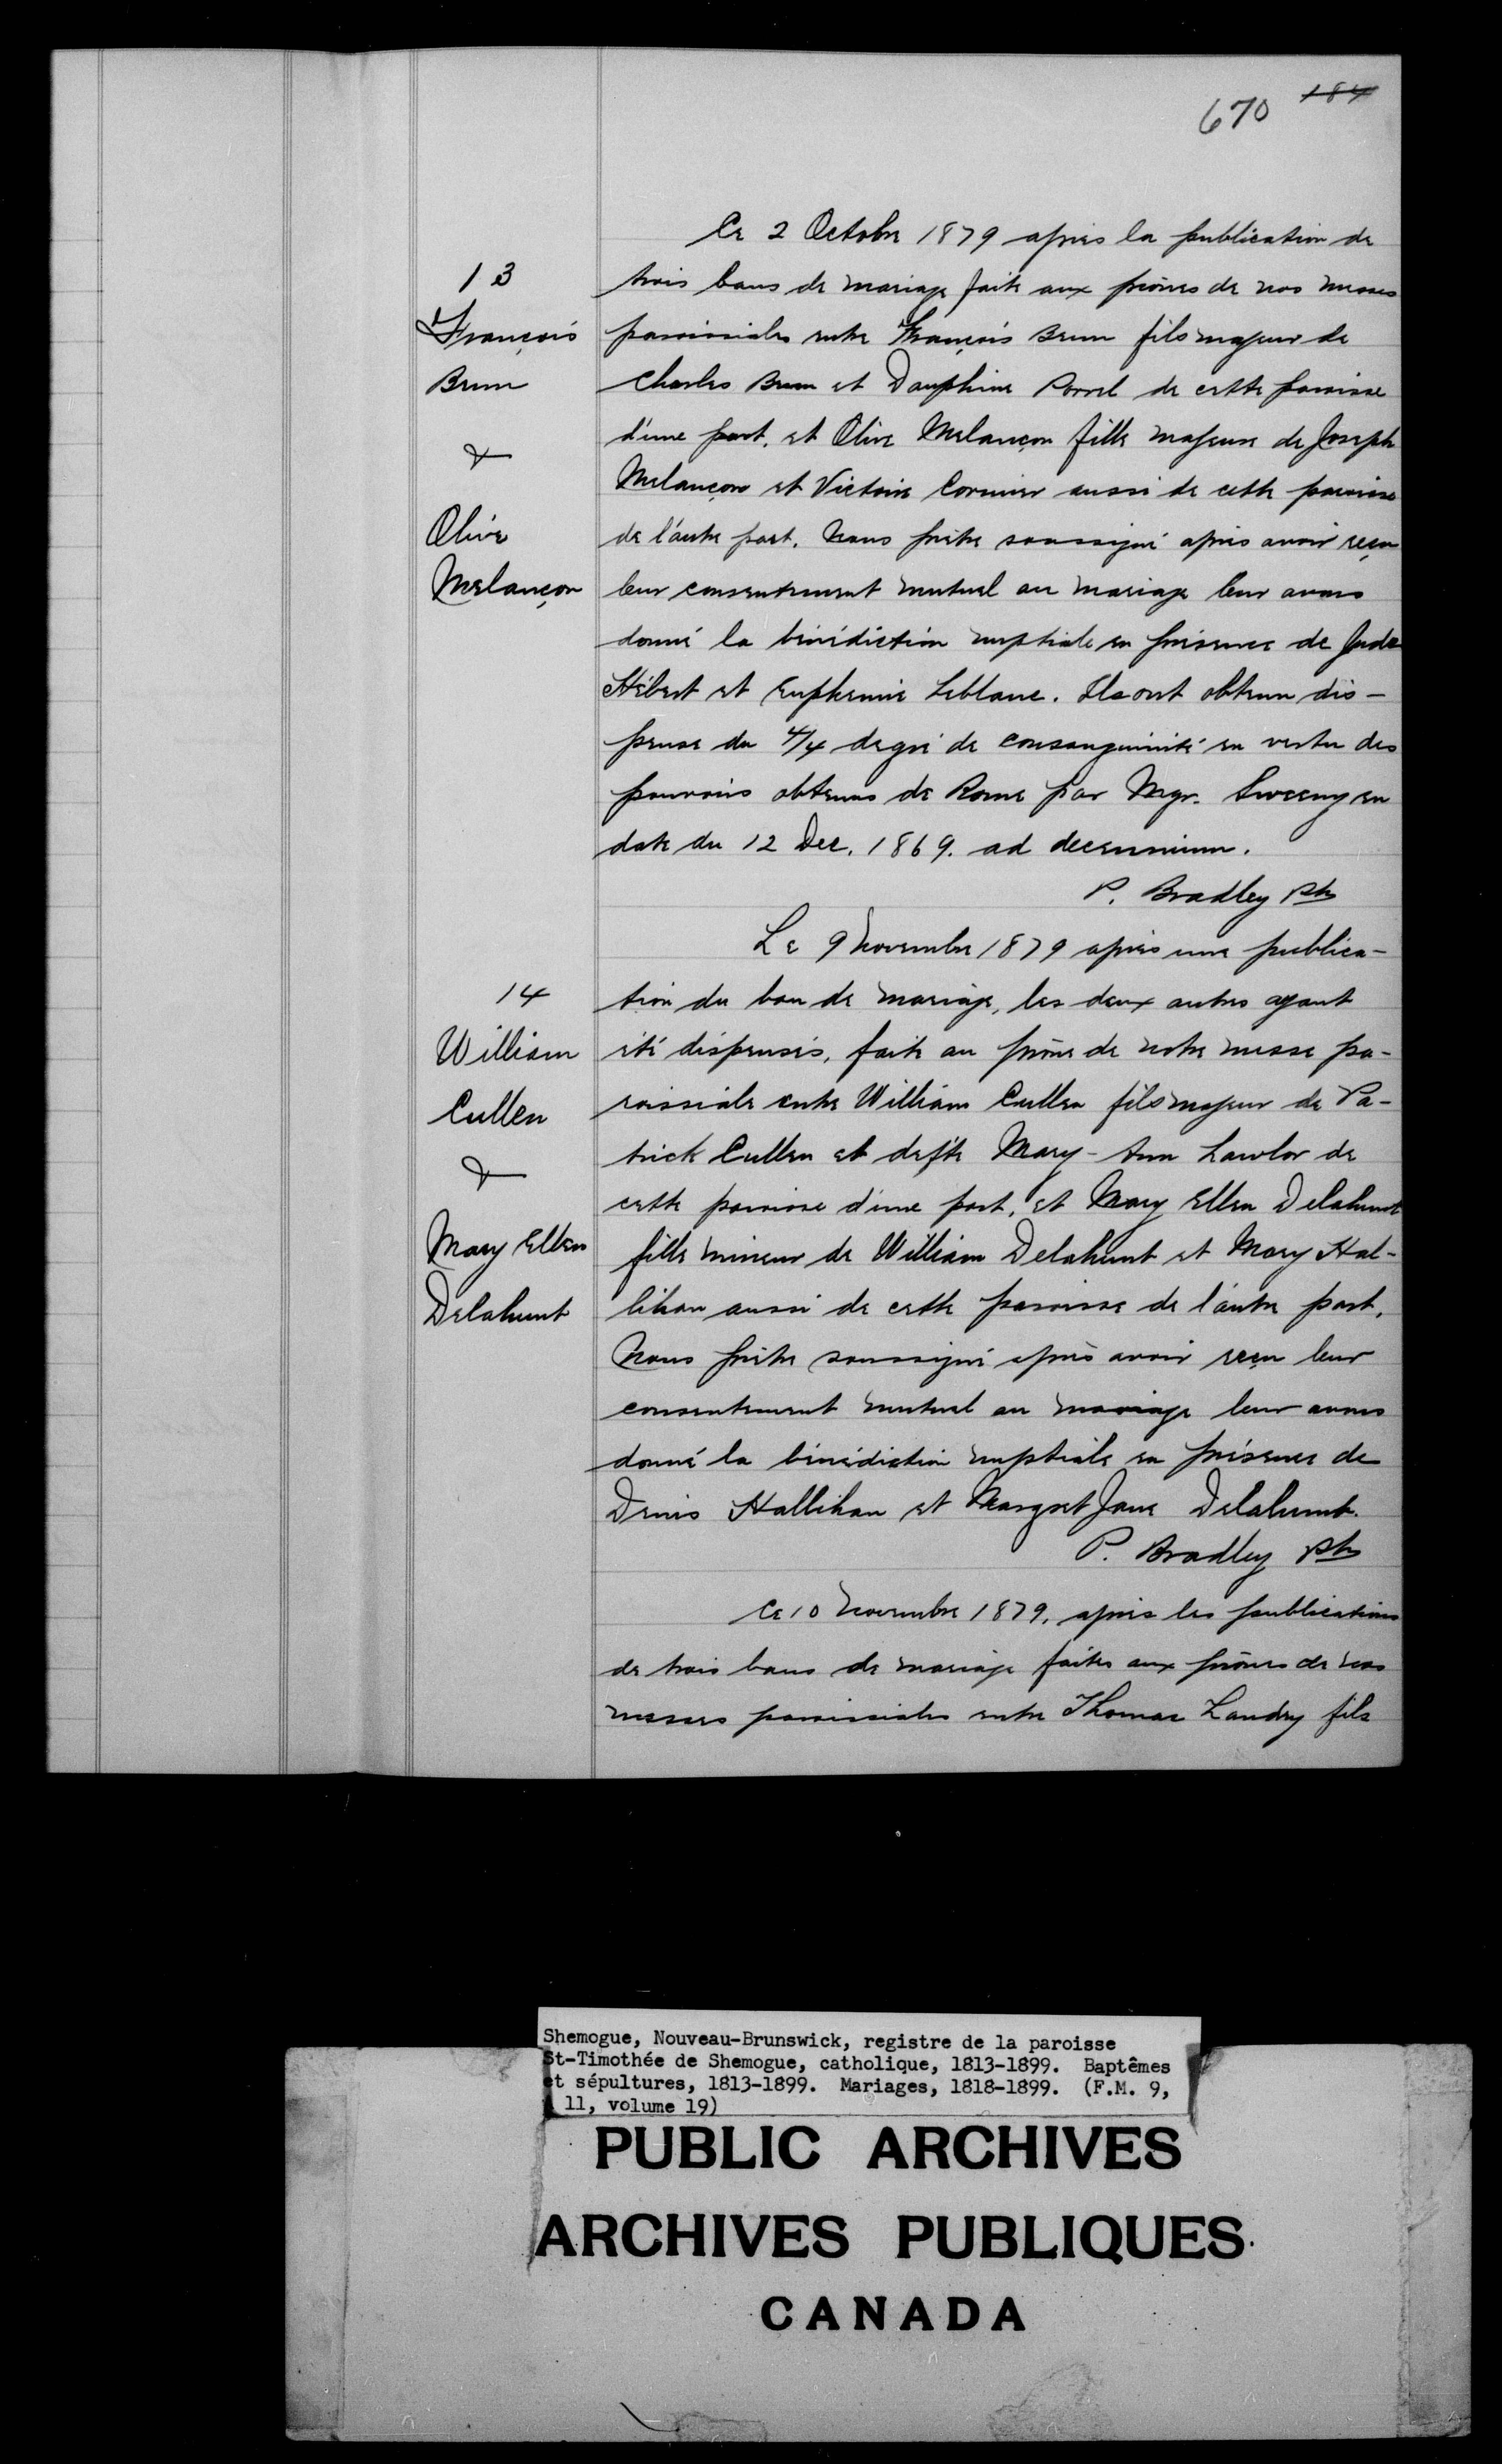 670 184
Ce 2 Octobre 1879 après la publication de
trois bans de mariage faite aux prônes de nos messes
paroissiales entre François Brun fils majeur de
Charles Brun et Dauphine Porrel de cette paroisse
d'une part, et Olive Melançon fille majeure de Joseph
Melançon et Victoire Cormier aussi de cette paroisse
de l'autre part. Nous prêtre soussigné après avoir reçu
leur consentement mutuel au mariage leur avons
donné la bénédiction nuptiale en présence de Jude
Hébert et Euphemie Leblanc. Ils ont obtenu dis-
pense du 4/4 degré de consanguinité en vertu des
pouvoirs obtenus de Rome par Mgr. Sweeny en
date du 12 Dec. 1869. ad decennium.
P. Bradley Ptr
13
François
Brun
&
Olive
Melançon
Le 9 Novembre 1879 après une publica-
tion du ban de mariage, les deux autres ayant
été dispensés, faite au prône de notre messe pa-
roissiale entre William Cullen fils majeur de Pa-
trick Cullen et defte Mary-Ann Lawlor de
cette paroisse d'une part, et Mary Ellen Delahunt
fille mineur de William Delahunt et Mary Hal-
lihan aussi de cette paroisse de l'autre part.
Nous prêtre soussigné après avoir reçu leur
consentement mutuel au mariage leur avons
donné la bénédiction nuptiale en présence de
Denis Hallihan et Margret Jane Delahunt.
P. Bradley Ptr
14
William
Cullen
&
Mary Ellen
Delahunt
Ce 10 Novembre 1879, après les publications
de trois bans de mariage faites aux prônes de nos
messes paroissiales entre Thomas Landry fils
Shemogue, Nouveau-Brunswick, registre de la paroisse
St-Timothée de Shemogue, catholique, 1813-1899. Baptêmes
et sépultures, 1813-1899. Mariages, 1818-1899. (F.M. 9,
11, volume 19)
PUBLIC ARCHIVES
ARCHIVES PUBLIQUES
CANADA